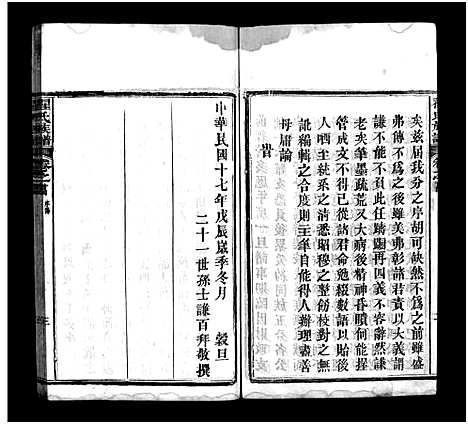 矣茲届我分之序胡可缺然不為之前雖盛
弗傳不為之後雖美弗彰諸君責以大義謂
謙不能不負巨任躊躇再四義不容辭然謙
老矣筆墨疏荒又大病後精神昏憒何能握
管成文不得已從諸君命勉綴數語以貽後
人哂至統系之清悉昭穆之整飭校對之無
訛編輯之合度則三年自能得人辦理盡善
毋庸論
昔
中華民國十七年戊辰歲季冬月　穀旦
二十一世孫士謙百拜敬撰
程氏族譜